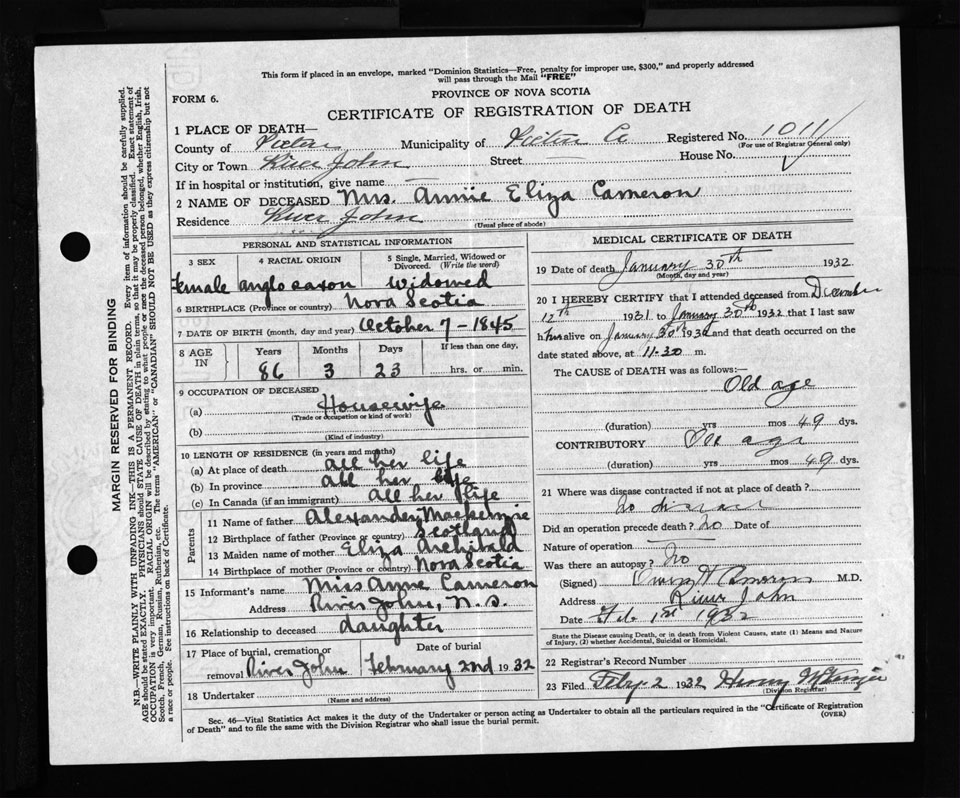 This form if placed in an envelope, marked "Dominion Statistics—Free, penalty for improper use, $300," and properly addressed
will pass through the Mail "FREE"
FORM 6.
PROVINCE OF NOVA SCOTIA
CERTIFICATE OF REGISTRATION OF DEATH
1 PLACE OF DEATH—
County of Pictou Municipality of Pictou Co Registered No. 1011
(For use of Registrar General only)
City or Town River John Street House No.
If in hospital or institution, give name
2 NAME OF DECEASED Mrs. Annie Eliza Cameron
Residence River John
(Usual place of abode)
PERSONAL AND STATISTICAL INFORMATION
3 SEX 4 RACIAL ORIGIN 5 Single, Married, Widowed or Divorced. (Write the word)
Female anglo saxon widowed
6 BIRTHPLACE (Province or country) Nova Scotia
7 DATE OF BIRTH (month, day and year) October 7 - 1845
8 AGE IN Years Months Days If less than one day,
86 3 23 hrs. or min.
9 OCCUPATION OF DECEASED
(a) Housewife
(Trade or occupation or kind of work)
(b)
(Kind of industry)
10 LENGTH OF RESIDENCE (in years and months)
(a) At place of death all her life
(b) In province all her life
(c) In Canada (if an immigrant) all her life
Parents
11 Name of father Alexander
12 Birthplace of father (Province or country) Scotland
13 Maiden name of mother Eliza Archibald
14 Birthplace of mother (Province or country) Nova Scotia
15 Informant's name Miss Anne Cameron
Address River John, N.S.
16 Relationship to deceased daughter
17 Place of burial, cremation or removal River John Date of burial February 2nd 1932
18 Undertaker
(Name and address)
MEDICAL CERTIFICATE OF DEATH
19 Date of death January 30th 1932
(Month, day and year)
20 I HEREBY CERTIFY that I attended deceased from December
12th 1931 to January 30th 1932 that I last saw
her alive on January 30th 1932 and that death occurred on
date stated above, at 11-30 m.
The CAUSE OF DEATH was as follows:—
Old age
(duration) yrs mos 49 dys.
CONTRIBUTORY Old age
(duration) yrs mos 49 dys.
21 Where was disease contracted if not at place of death?
No disease
Did an operation precede death? No Date of
Nature of operation
Was there an autopsy? No
(Signed) Cameron M.D.
Address River John
Date Feb 1st 1932
State the Disease causing Death, or in death from Violent Causes, state (1) Means and Nature
of Injury, (2) whether Accidental, Suicidal or Homicidal.
22 Registrar's Record Number
23 Filed Feby 2 1932 Henry
(Division Registrar)
Sec. 46—Vital Statistics Act makes it the duty of the Undertaker or person acting as Undertaker to obtain all the particulars required in the "Certificate of Registration
of Death" and to file the same with the Division Registrar who shall issue the burial permit.
(OVER)
MARGIN RESERVED FOR BINDING
N.B.—WRITE PLAINLY WITH UNFADING INK—THIS IS A PERMANENT RECORD. Every item of information should be carefully supplied.
AGE should be stated EXACTLY. PHYSICIANS should STATE CAUSE OF DEATH in plain terms, so that it may be properly classified. Exact statement of
OCCUPATION is very important. RACIAL ORIGIN will be described by stating to what people or race the deceased person belonged, whether English, Irish,
Scotch, French, German, Russian, Ruthenian, etc. The terms "AMERICAN" or "CANADIAN" SHOULD NOT BE USED as they express citizenship but not
a race or people. See instructions on back of Certificate.